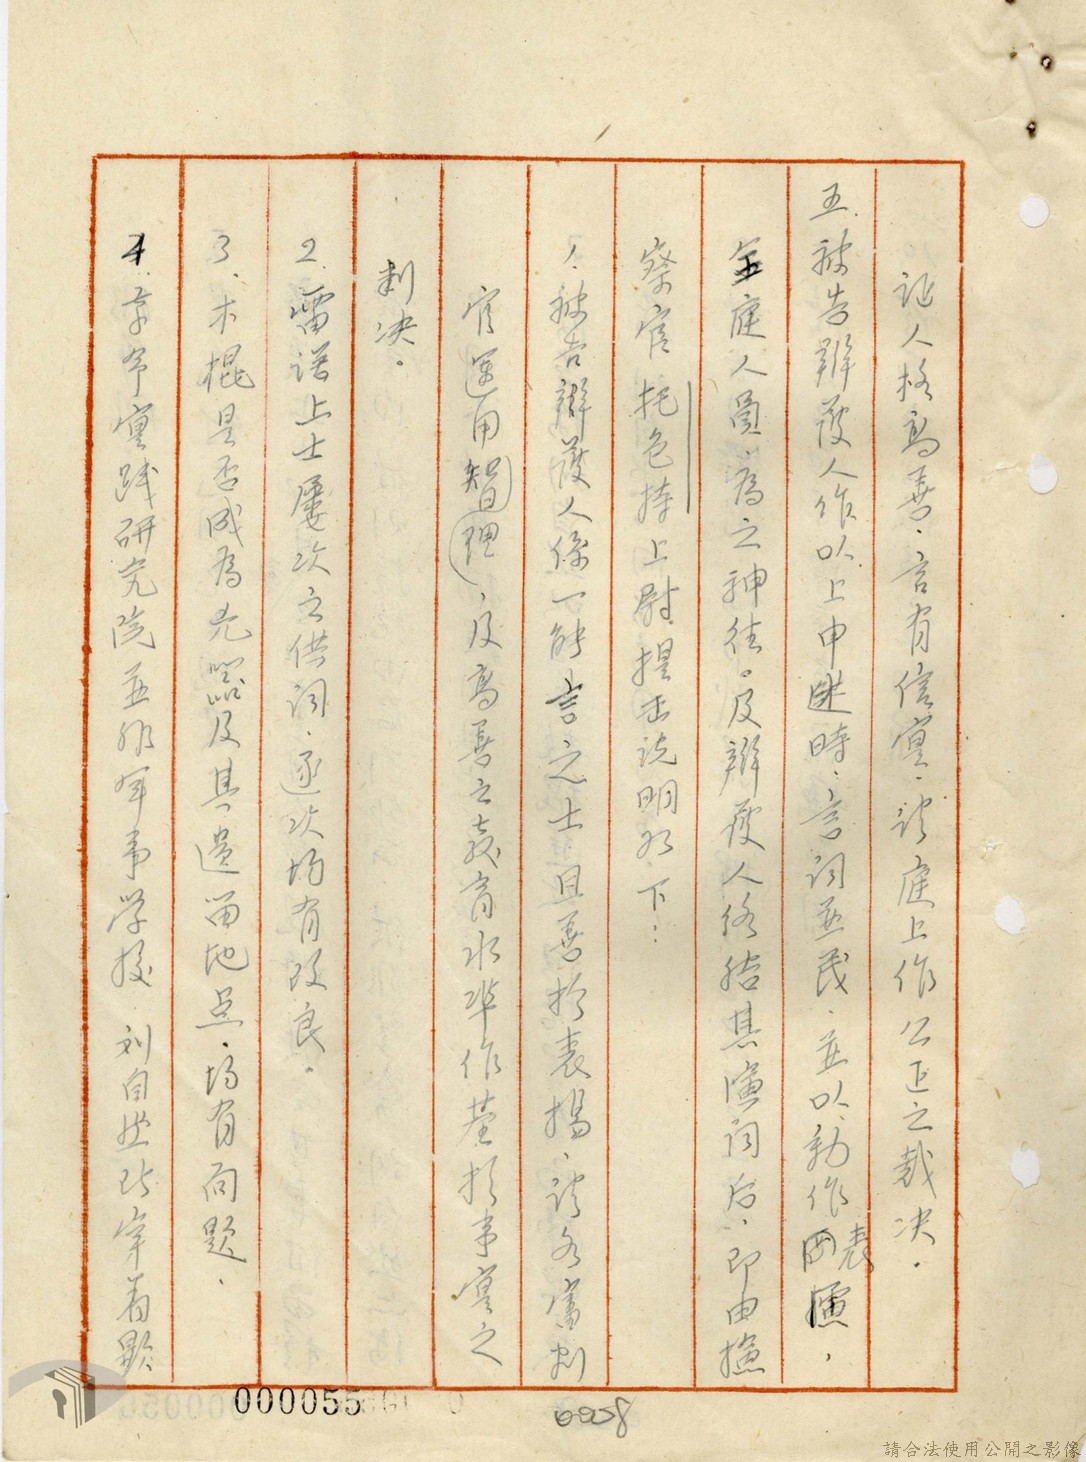 証人格高善，言有信實，請庭上作公正之裁決。
五、被告辯護人作以上申述時，言詞並茂，並以動作表演，
全庭人員，為之神往。及辯護人終結其演詞后，即由撿
察官托色持上尉提出說明如下：
1、被告辯護人係一能言之士且善於表揚，請各審判
官運用智理，及高善之教育水準作基於事實之
判決。
2、雷諾上士屢次之供詞，逐次均有改良。
3、木棍是否成為兇器及其遺留地点，均有問題，
4、革命實踐研究院並非軍事学校，刘自然
000055
請合法使用公開之影像